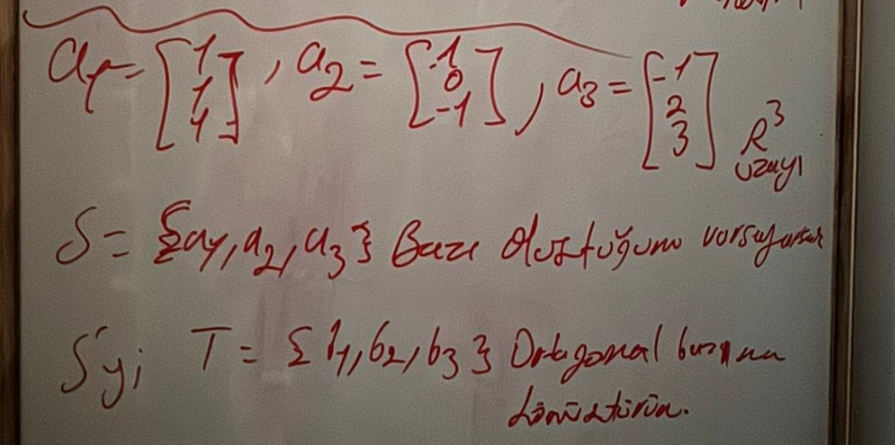 a₁ = [1 1 1], a₂ = [-1 0 -1], a₃ = [-1 2 3] R³ uzayı
S = {a₁, a₂, a₃} Bazı oluştuğunu varsayarsak
S'yi T = {b₁, b₂, b₃} Ortogonal bazına
dönüştürün.